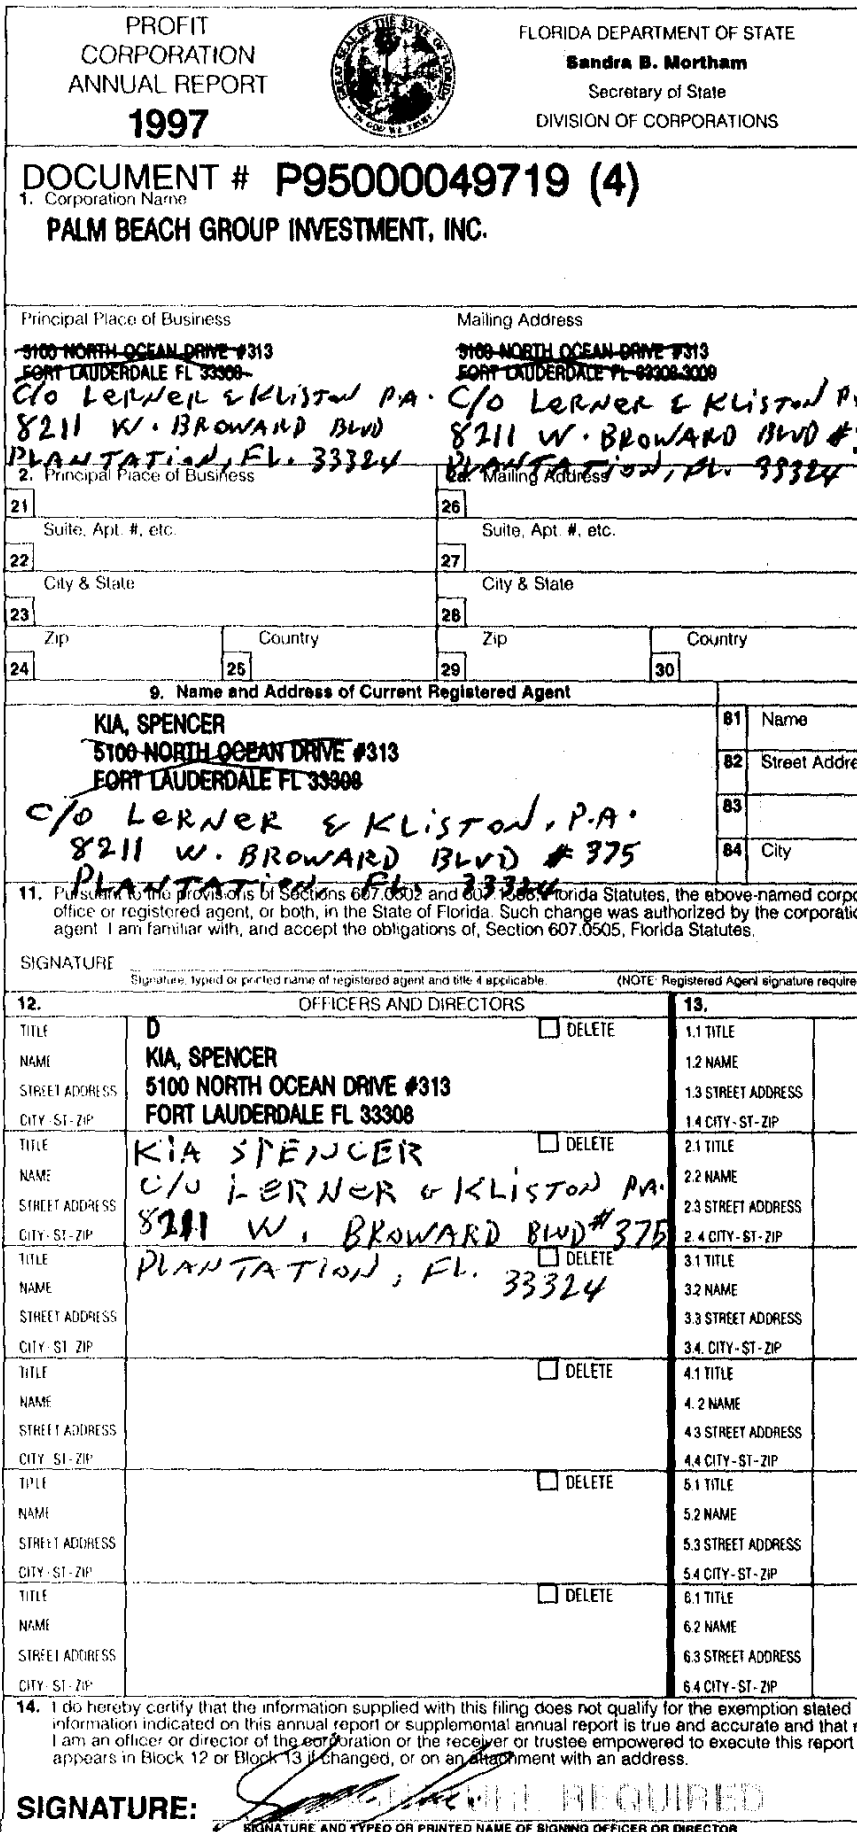 PROFIT
CORPORATION
ANNUAL REPORT
1997
GREAT SEAL OF THE STATE OF FLORIDA
IN GOD WE TRUST
FLORIDA DEPARTMENT OF STATE
Sandra B. Mortham
Secretary of State
DIVISION OF CORPORATIONS
DOCUMENT # P95000049719 (4)
1. Corporation Name
PALM BEACH GROUP INVESTMENT, INC.
Principal Place of Business
5100 NORTH OCEAN DRIVE #313
FORT LAUDERDALE FL 33308
C/O LERNER & KLISTON P.A.
8211 W. BROWARD BLVD
PLANTATION, FL. 33324
Mailing Address
5100 NORTH OCEAN DRIVE #313
FORT LAUDERDALE FL 33308-3009
C/O LERNER & KLISTON P
8211 W. BROWARD BLVD #
PLANTATION, FL. 33324
2. Principal Place of Business
2a. Mailing Address
21
26
Suite, Apt. #, etc.
Suite, Apt. #, etc.
22
27
City & State
City & State
23
28
Zip
Country
Zip
Country
24
25
29
30
9. Name and Address of Current Registered Agent
KIA, SPENCER
5100 NORTH OCEAN DRIVE #313
FORT LAUDERDALE FL 33308
C/O LERNER & KLISTON, P.A.
8211 W. BROWARD BLVD # 375
PLANTATION FL. 33324
81 Name
82 Street Addre
83
84 City
11. Pursuant to the provisions of Sections 607.0502 and 607.1508, Florida Statutes, the above-named corpo
office or registered agent, or both, in the State of Florida. Such change was authorized by the corporatio
agent. I am familiar with, and accept the obligations of, Section 607.0505, Florida Statutes.
SIGNATURE
Signature, typed or printed name of registered agent and title if applicable. (NOTE: Registered Agent signature require
12. OFFICERS AND DIRECTORS 13.
TITLE D DELETE 1.1 TITLE
NAME KIA, SPENCER 1.2 NAME
STREET ADDRESS 5100 NORTH OCEAN DRIVE #313 1.3 STREET ADDRESS
CITY-ST-ZIP FORT LAUDERDALE FL 33308 1.4 CITY-ST-ZIP
TITLE KIA SPENCER DELETE 2.1 TITLE
NAME C/O LERNER & KLISTON P.A. 2.2 NAME
STREET ADDRESS 8211 W. BROWARD BLVD #375 2.3 STREET ADDRESS
CITY-ST-ZIP 2.4 CITY-ST-ZIP
TITLE PLANTATION, FL. 33324 DELETE 3.1 TITLE
NAME 3.2 NAME
STREET ADDRESS 3.3 STREET ADDRESS
CITY-ST-ZIP 3.4. CITY-ST-ZIP
TITLE DELETE 4.1 TITLE
NAME 4.2 NAME
STREET ADDRESS 4.3 STREET ADDRESS
CITY-ST-ZIP 4.4 CITY-ST-ZIP
TITLE DELETE 5.1 TITLE
NAME 5.2 NAME
STREET ADDRESS 5.3 STREET ADDRESS
CITY-ST-ZIP 5.4 CITY-ST-ZIP
TITLE DELETE 6.1 TITLE
NAME 6.2 NAME
STREET ADDRESS 6.3 STREET ADDRESS
CITY-ST-ZIP 6.4 CITY-ST-ZIP
14. I do hereby certify that the information supplied with this filing does not qualify for the exemption stated
information indicated on this annual report or supplemental annual report is true and accurate and that
I am an officer or director of the corporation or the receiver or trustee empowered to execute this report
appears in Block 12 or Block 13 if changed, or on an attachment with an address.
SIGNATURE: SIGNATURE REQUIRED
SIGNATURE AND TYPED OR PRINTED NAME OF SIGNING OFFICER OR DIRECTOR